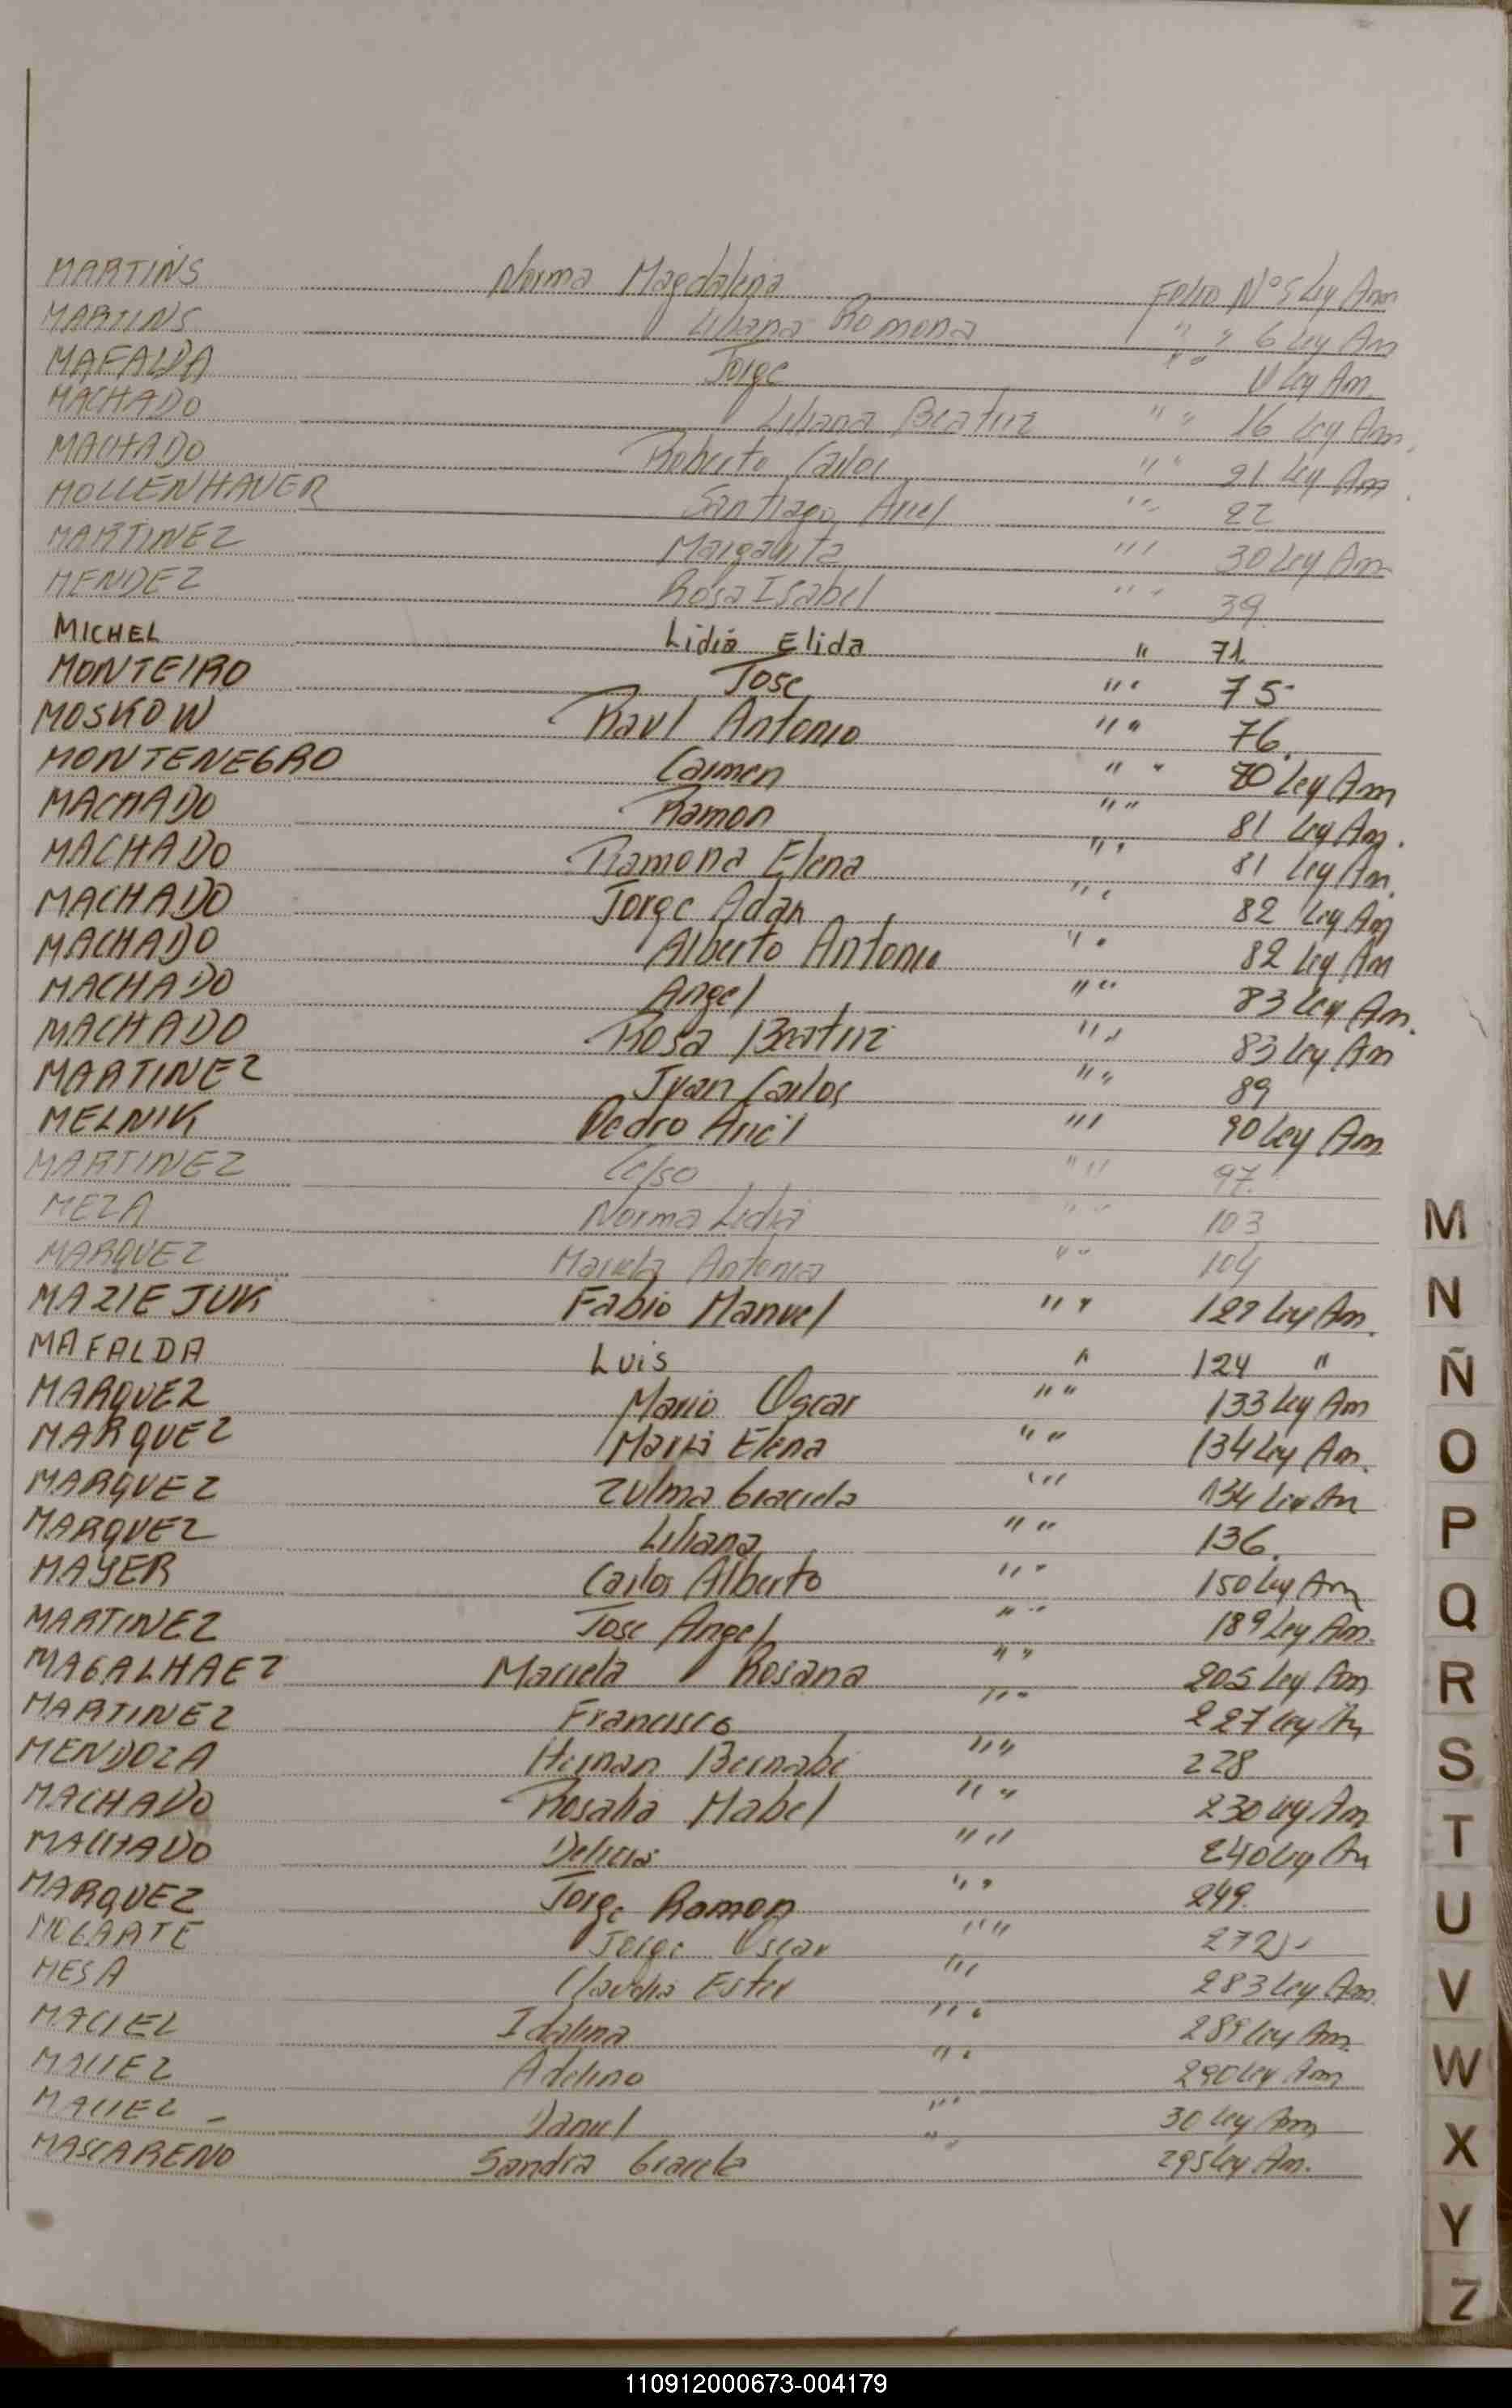 MARTINS Norma Magdalena Folio Nº 5 Ley Am
MARTINS Liliana Romona " " 6 Ley Am
MAFALDA Jorge " " 11 Ley Am.
MACHADO Liliana Beatriz " " 16 Ley Am.
MACHADO Roberto Carlos " " 21 Ley Am.
MOLLENHAVER Santiago Ariel " " 22
MARTINEZ Margarita " " 30 Ley Am
MENDEZ Rosa Isabel " " 39.
MICHEL Lidia Elida " 71.
MONTEIRO Jose " " 75
MOSKOW Raul Antonio " " 76.
MONTENEGRO Carmen " " Ley Am
MACHADO Ramon " " 81 Ley Am.
MACHADO Ramona Elena " " 81 Ley Am.
MACHADO Jorge Adan " " 82 Ley Am
MACHADO Alberto Antonio " " 82 Ley Am
MACHADO Angel " " 83 Ley Am.
MACHADO Rosa Beatriz " " 83 Ley Am
MARTINEZ Juan Carlos " " 89
MELNIK Pedro Ariel " " 90 Ley Am
MARTINEZ Celso " " 97.
MEZA Norma Lidia " " 103
MARQUEZ Mariela Antonia " " 104
MAZIEJUK Fabio Manuel " " Ley Am.
MAFALDA Luis " 124 "
MARQUEZ Mario Oscar " " 133 Ley Am
MARQUEZ Maria Elena " " 134 Ley Am.
MARQUEZ Zulma Graciela " " 134 Ley Am
MARQUEZ Liliana " " 136.
MAYER Carlos Alberto " " 150 Ley Am
MARTINEZ Jose Angel " " 189 Ley Am.
MAGALHAEZ Mariela Rosana " " 205 Ley Am
MARTINEZ Francisco " " 227 Ley Am
MENDOZA Hernan Bernabe " " 228
MACHADO Rosalia Mabel " " 230 Ley Am
MACHADO Delicia " " 240 Ley Am
MARQUEZ Jorge Ramon " " 249.
Jorge Oscar " " 272
MESA Claudia Ester " " 283 Ley Am.
MACIEL Idalina " " 289 Ley Am.
MACIEL Adelino " " 290 Ley Am
MACIEL Daniel " " 30 Ley Am
MASCARENO Sandra Graciela " " 295 Ley Am.
M
N
Ñ
O
P
Q
R
S
T
U
V
W
X
Y
Z
110912000673-004179